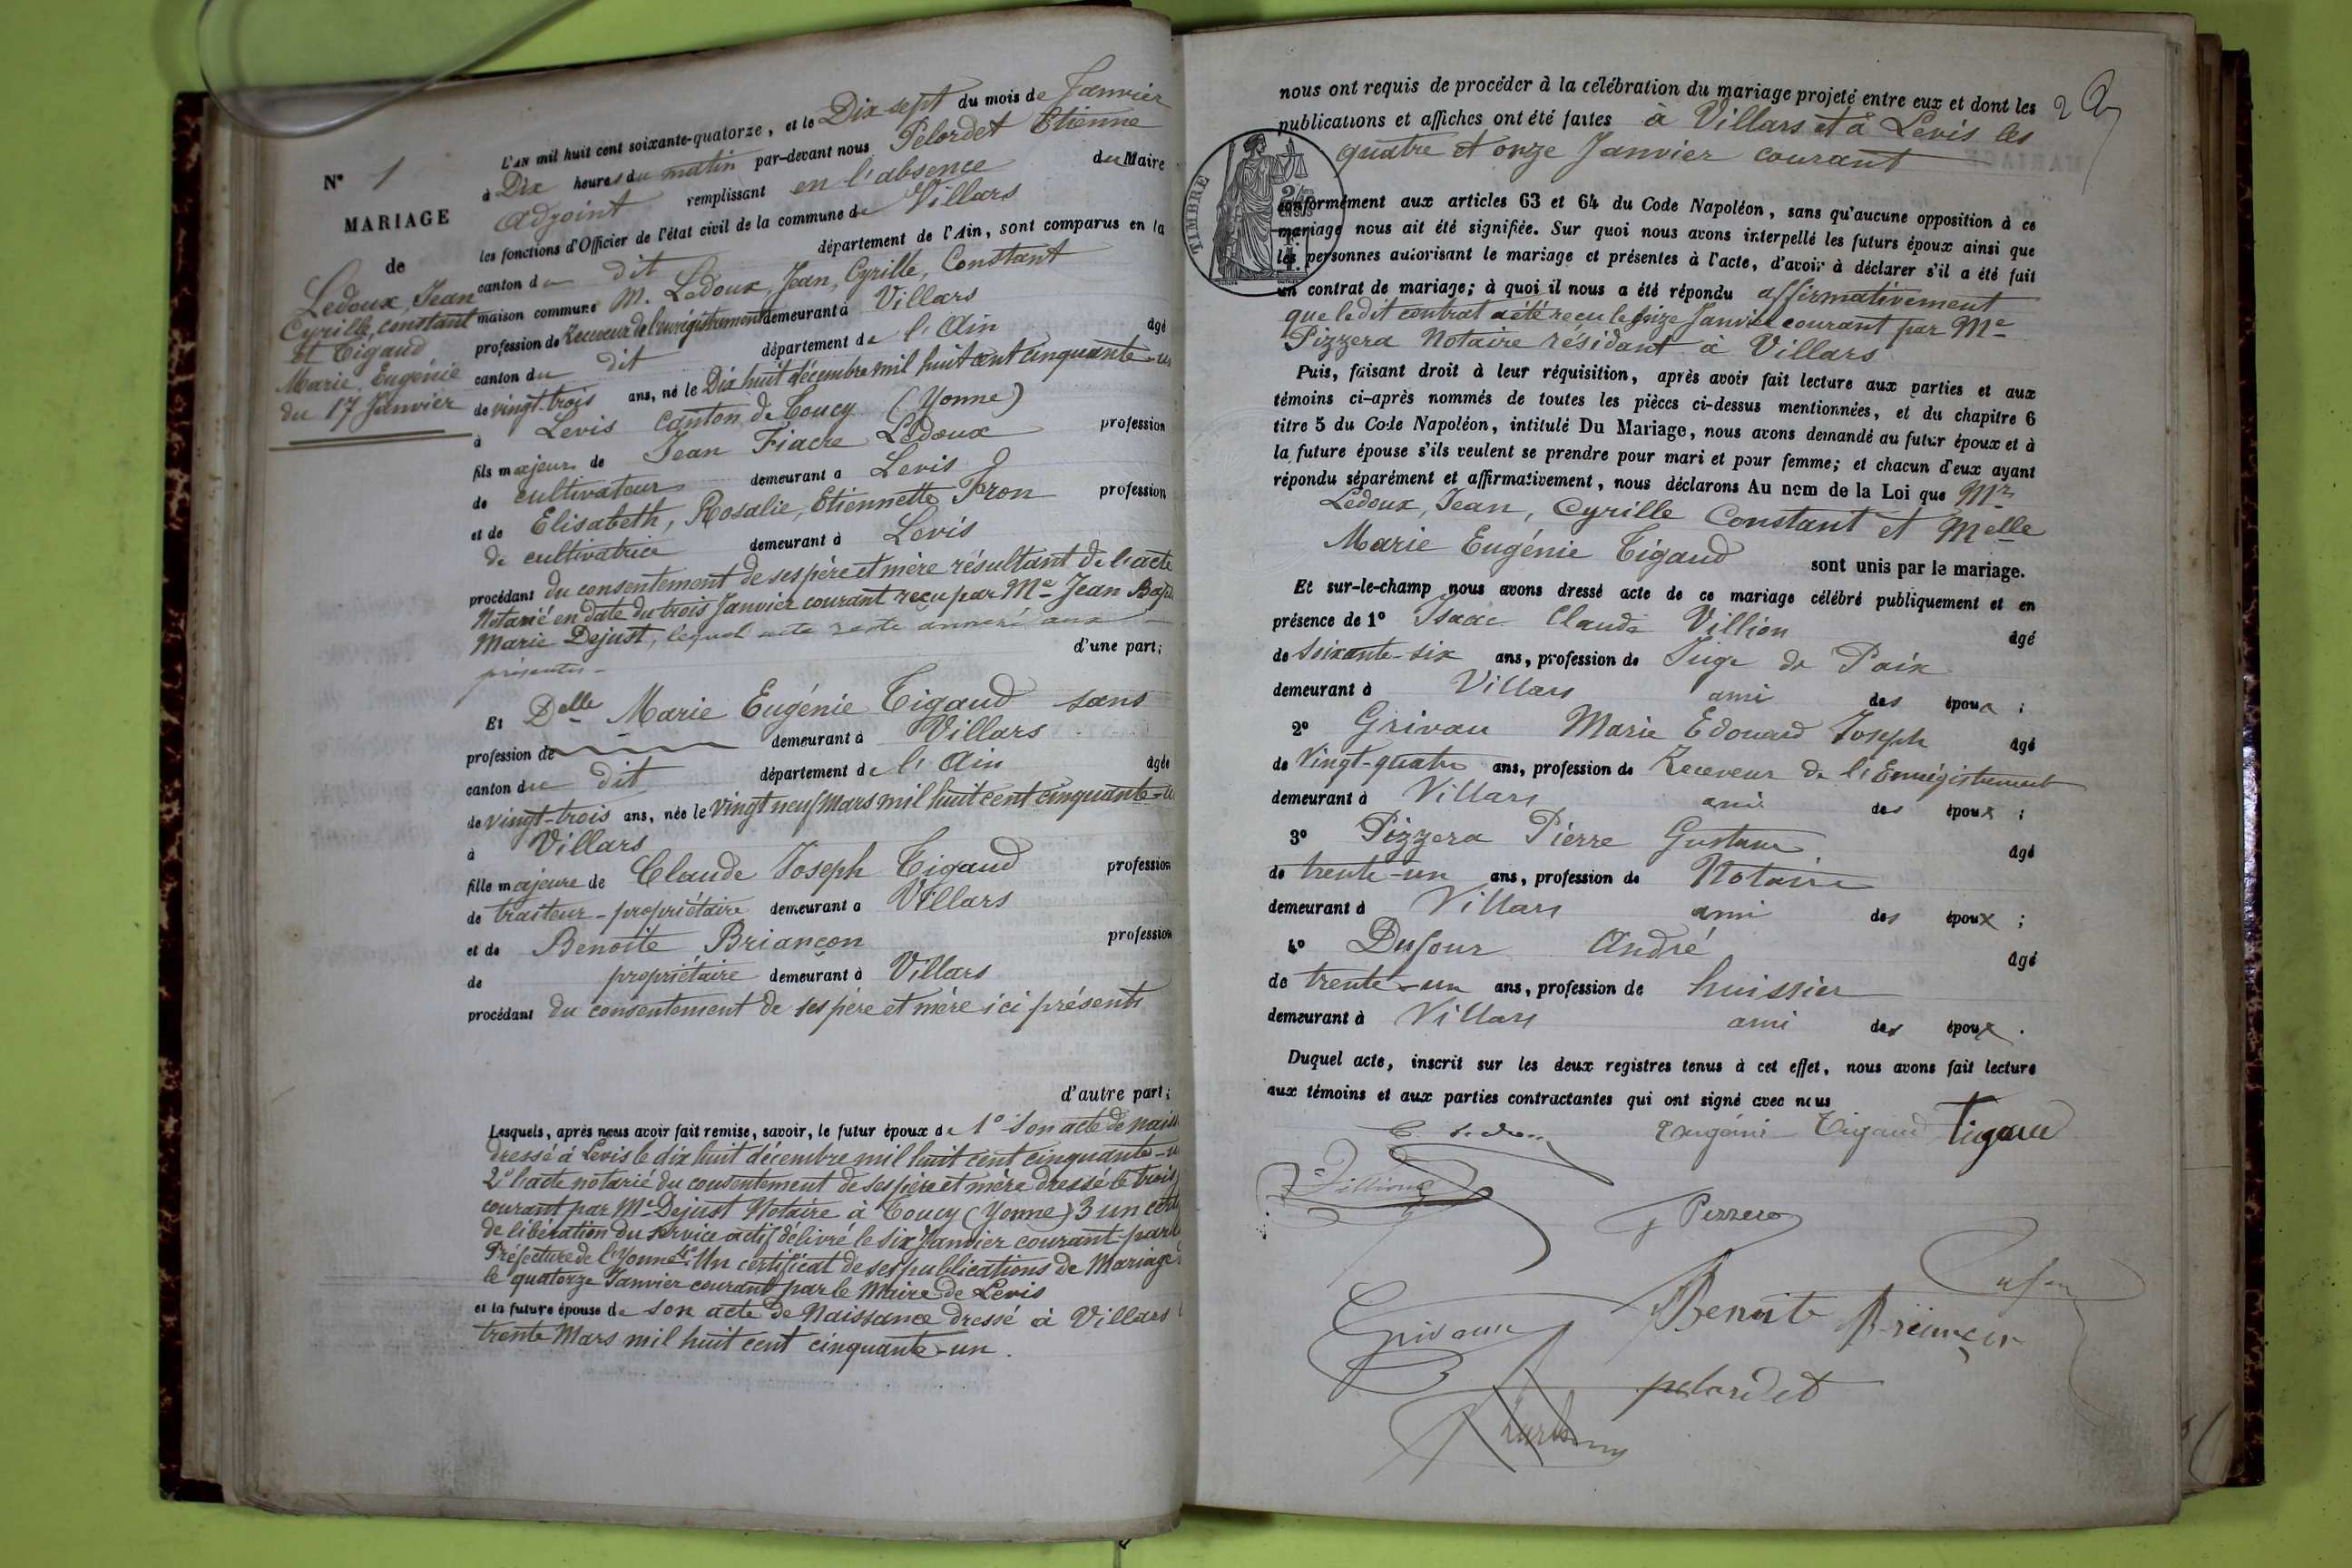 N° 1
MARIAGE
de
Ledoux, Jean
Cyrille, Constant
et Tigaud
Marie Eugénie
du 17 Janvier
L'AN mil huit cent soixante-quatorze, et le Dix-sept du mois de Janvier
à Dix heures du matin par-devant nous Pelordet Etienne
adjoint remplissant en l'absence du Maire
les fonctions d'Officier de l'état civil de la commune de Villars
canton du dit département de l'Ain, sont comparus en la
maison commune M. Ledoux, Jean, Cyrille, Constant
profession de Receveur de l'enrégistrement demeurant à Villars
canton du dit département de l'Ain âgé
de vingt-trois ans, né le Dix huit décembre mil huit cent cinquante-un
à Levis Canton de Toucy (Yonne)
fils majeur de Jean Fiacre Ledoux profession
de cultivateur demeurant à Levis
et de Elisabeth, Rosalie, Etiennette Pron profession
de cultivatrice demeurant à Levis
procédant du consentement de ses père et mère résultant de l'acte
Notarié en date du trois Janvier courant reçu par Me Jean Bapt
Marie Dejust, lequel acte reste annexé aux
présentes - d'une part;
Et Delle Marie Eugénie Tigaud sans
profession de demeurant à Villars
canton du dit département de l'Ain âgée
de vingt-trois ans, née le vingt neuf Mars mil huit cent cinquante-u
à Villars
fille majeure de Claude Joseph Tigaud profession
de traiteur-propriétaire demeurant à Villars
et de Benoite Briançon profession
de propriétaire demeurant à Villars
procédant du consentement de ses père et mère ici présents
d'autre part;
Lesquels, après nous avoir fait remise, savoir, le futur époux de 1° Son acte de naiss
dressé à Levis le dix huit décembre mil huit cent cinquante-u
2° l'acte notarié du consentement de ses père et mère dressé le trois J
courant par Me Dejust Notaire à Toucy (Yonne) 3 un cert
de libération du service actif délivré le six Janvier courant par la
Préfecture de l'Yonne 4° Un certificat de ses publications de Mariage d
le quatorze Janvier courant par le Maire de Levis
et la future épouse de son acte de Naissance dressé à Villars l
trente Mars mil huit cent cinquante-un.
2
nous ont requis de procéder à la célébration du mariage projeté entre eux et dont les
publications et affiches ont été faites à Villars et à Levis les
quatre et onze Janvier courant
TIMBRE
conformément aux articles 63 et 64 du Code Napoléon, sans qu'aucune opposition à ce
mariage nous ait été signifiée. Sur quoi nous avons interpellé les futurs époux ainsi que
les personnes autorisant le mariage et présentes à l'acte, d'avoir à déclarer s'il a été fait
un contrat de mariage; à quoi il nous a été répondu affirmativement
que le dit contrat a été reçu le seize Janvier courant par Me
Pizzera Notaire résidant à Villars
Puis, faisant droit à leur réquisition, après avoir fait lecture aux parties et aux
témoins ci-après nommés de toutes les pièces ci-dessus mentionnées, et du chapitre 6
titre 5 du Code Napoléon, intitulé Du Mariage, nous avons demandé au futur époux et à
la future épouse s'ils veulent se prendre pour mari et pour femme; et chacun d'eux ayant
répondu séparément et affirmativement, nous déclarons Au nom de la Loi que Mr
Ledoux, Jean, Cyrille Constant et Melle
Marie Eugénie Tigaud sont unis par le mariage.
Et sur-le-champ nous avons dressé acte de ce mariage célébré publiquement et en
présence de 1° Isaac Claude Villion âgé
de Soixante-six ans, profession de Juge de Paix
demeurant à Villars ami des époux ;
2° Grivau Marie Edouard Joseph âgé
de Vingt-quatre ans, profession de Receveur de l'Enregistrement
demeurant à Villars ami des époux ;
3° Pizzera Pierre Gustave âgé
de trente-un ans, profession de Notaire
demeurant à Villars ami des époux ;
4° Dufour André âgé
de trente-un ans, profession de huissier
demeurant à Villars ami des époux .
Duquel acte, inscrit sur les deux registres tenus à cet effet, nous avons fait lecture
aux témoins et aux parties contractantes qui ont signé avec nous
Eugénie Tigaud Tigaud
Villion
Pizzera
Dufour
Grivau Benoite Briançon
pelordet